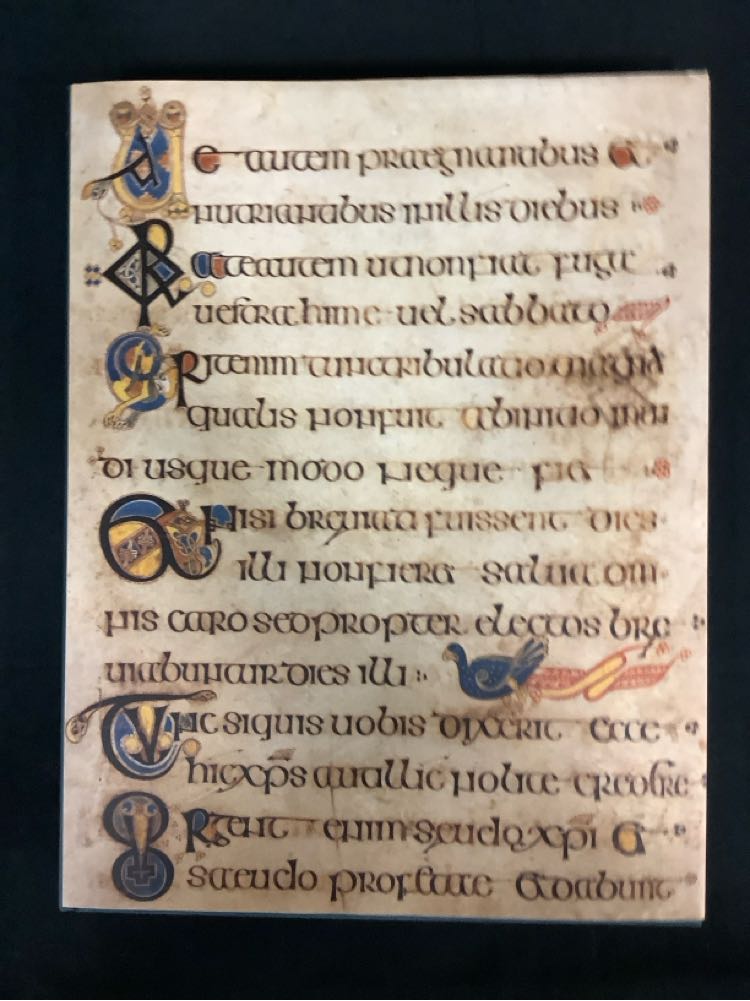 Uae autem praegnantibus et
nutriantibus in illis diebus
Orate autem ut non fiat fuga
uestra hime uel sabbato
Erit enim tunc tribulatio magna
qualis non fuit ab initio mun
di usque modo neque fiet
Et nisi breuiati fuissent dies
illi non fieret salua om
nis caro sed propter electos bre
uiabuntur dies illi
Tunc si quis uobis dixerit ecce
hic xps aut illic nolite credere
Surgent enim seudo xpi et
saeudo profetae et dabunt